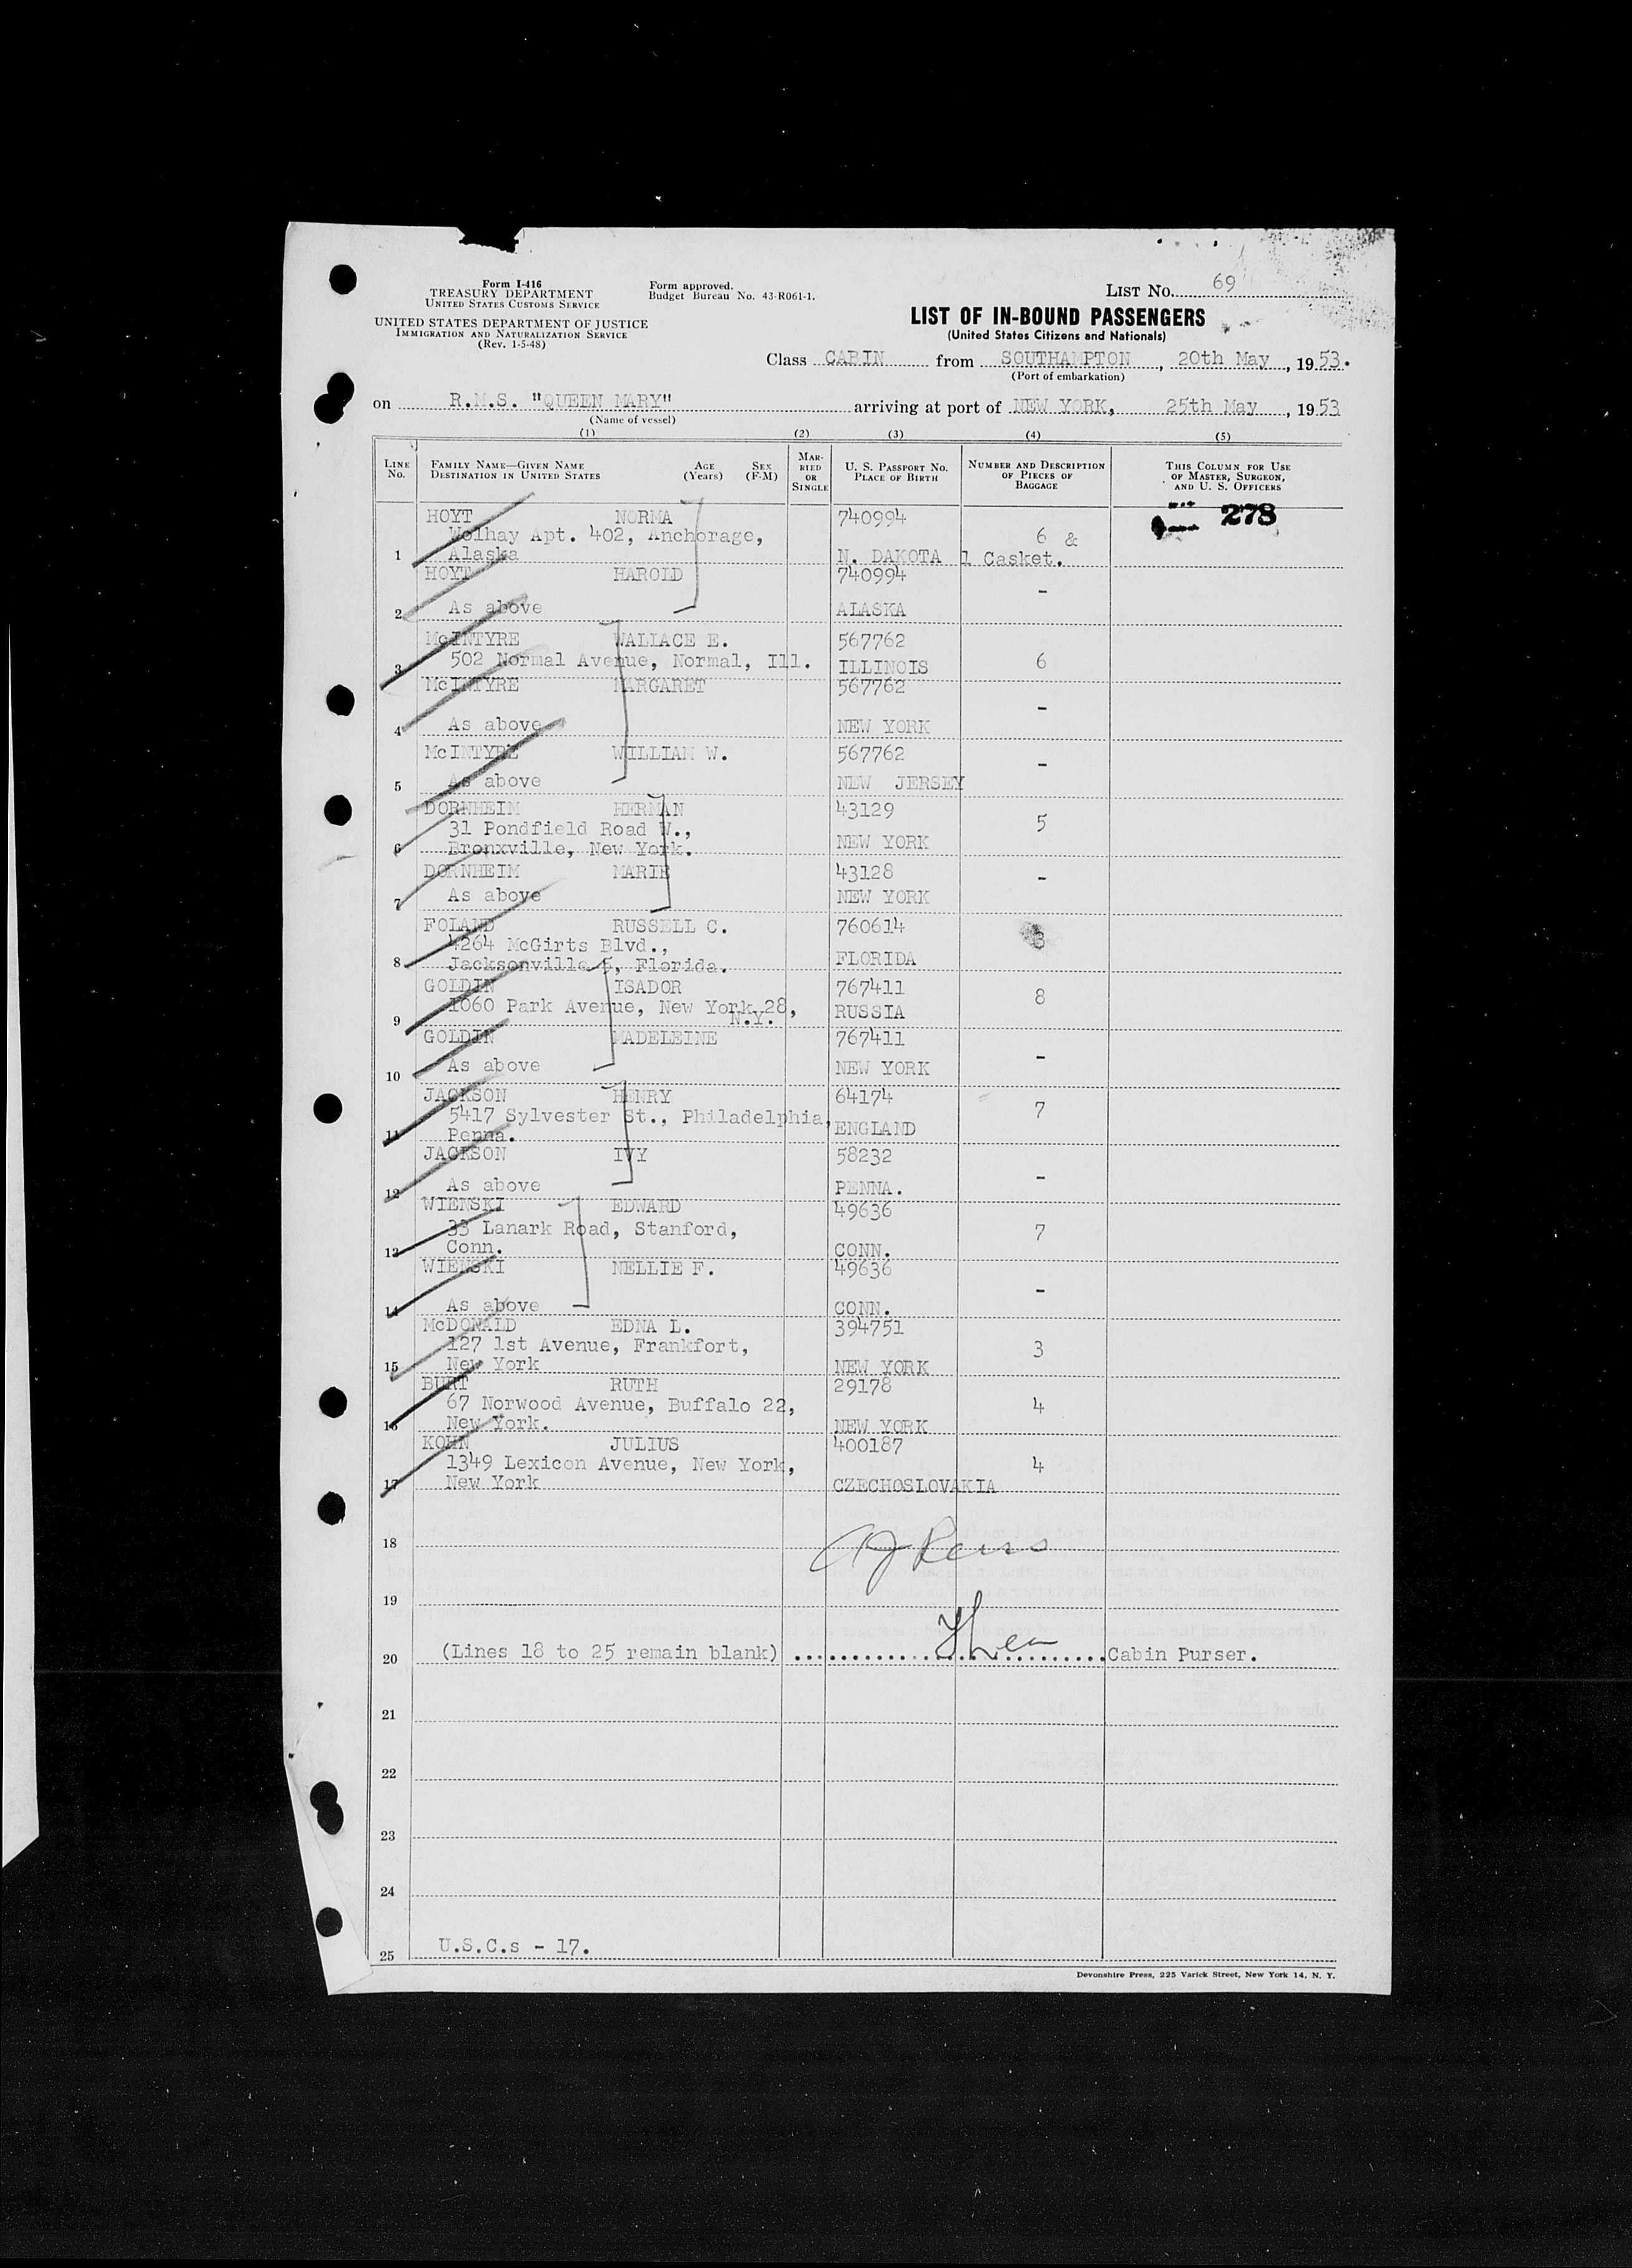 Form I-416
TREASURY DEPARTMENT
UNITED STATES CUSTOMS SERVICE
UNITED STATES DEPARTMENT OF JUSTICE
IMMIGRATION AND NATURALIZATION SERVICE
(Rev. 1-5-48)
Form approved.
Budget Bureau No. 43-R061-1.
LIST No. 69
LIST OF IN-BOUND PASSENGERS
(United States Citizens and Nationals)
Class CABIN from SOUTHAMPTON, 20th May, 1953.
(Port of embarkation)
on R.M.S. "QUEEN MARY" arriving at port of NEW YORK, 25th May, 1953
(Name of vessel)
(1) (2) (3) (4) (5)
LINE No. FAMILY NAME—GIVEN NAME DESTINATION IN UNITED STATES AGE (Years) SEX (F-M) MARRIED OR SINGLE U. S. PASSPORT No. PLACE OF BIRTH NUMBER AND DESCRIPTION OF PIECES OF BAGGAGE THIS COLUMN FOR USE OF MASTER, SURGEON, AND U. S. OFFICERS
278
HOYT NORMA 740994
Wolhay Apt. 402, Anchorage, 6 &
1 Alaska N. DAKOTA 1 Casket.
HOYT HAROLD 740994
-
2 As above ALASKA
McINTYRE WALLACE E. 567762
3 502 Normal Avenue, Normal, Ill. ILLINOIS 6
McINTYRE MARGARET 567762
-
4 As above NEW YORK
McINTYRE WILLIAM W. 567762
-
5 As above NEW JERSEY
DORNHEIM HERMAN 43129
31 Pondfield Road W., 5
6 Bronxville, New York. NEW YORK
DORNHEIM MARIE 43128
-
7 As above NEW YORK
FOLAND RUSSELL C. 760614
4264 McGirts Blvd., 3
8 Jacksonville 5, Florida. FLORIDA
GOLDIN ISADOR 767411
1060 Park Avenue, New York 28, 8
9 N.Y. RUSSIA
GOLDIN MADELEINE 767411
-
10 As above NEW YORK
JACKSON HENRY 64174
5417 Sylvester St., Philadelphia, 7
11 Penna. ENGLAND
JACKSON IVY 58232
-
12 As above PENNA.
WIENSKI EDWARD 49636
33 Lanark Road, Stanford, 7
13 Conn. CONN.
WIENSKI NELLIE F. 49636
-
14 As above CONN.
McDONALD EDNA L. 394751
127 1st Avenue, Frankfort, 3
15 New York NEW YORK
BURT RUTH 29178
67 Norwood Avenue, Buffalo 22, 4
16 New York. NEW YORK
KOHN JULIUS 400187
1349 Lexicon Avenue, New York, 4
17 New York CZECHOSLOVAKIA
18
19
20 (Lines 18 to 25 remain blank) Cabin Purser.
21
22
23
24
25 U.S.C.s - 17.
Devonshire Press, 225 Varick Street, New York 14, N. Y.